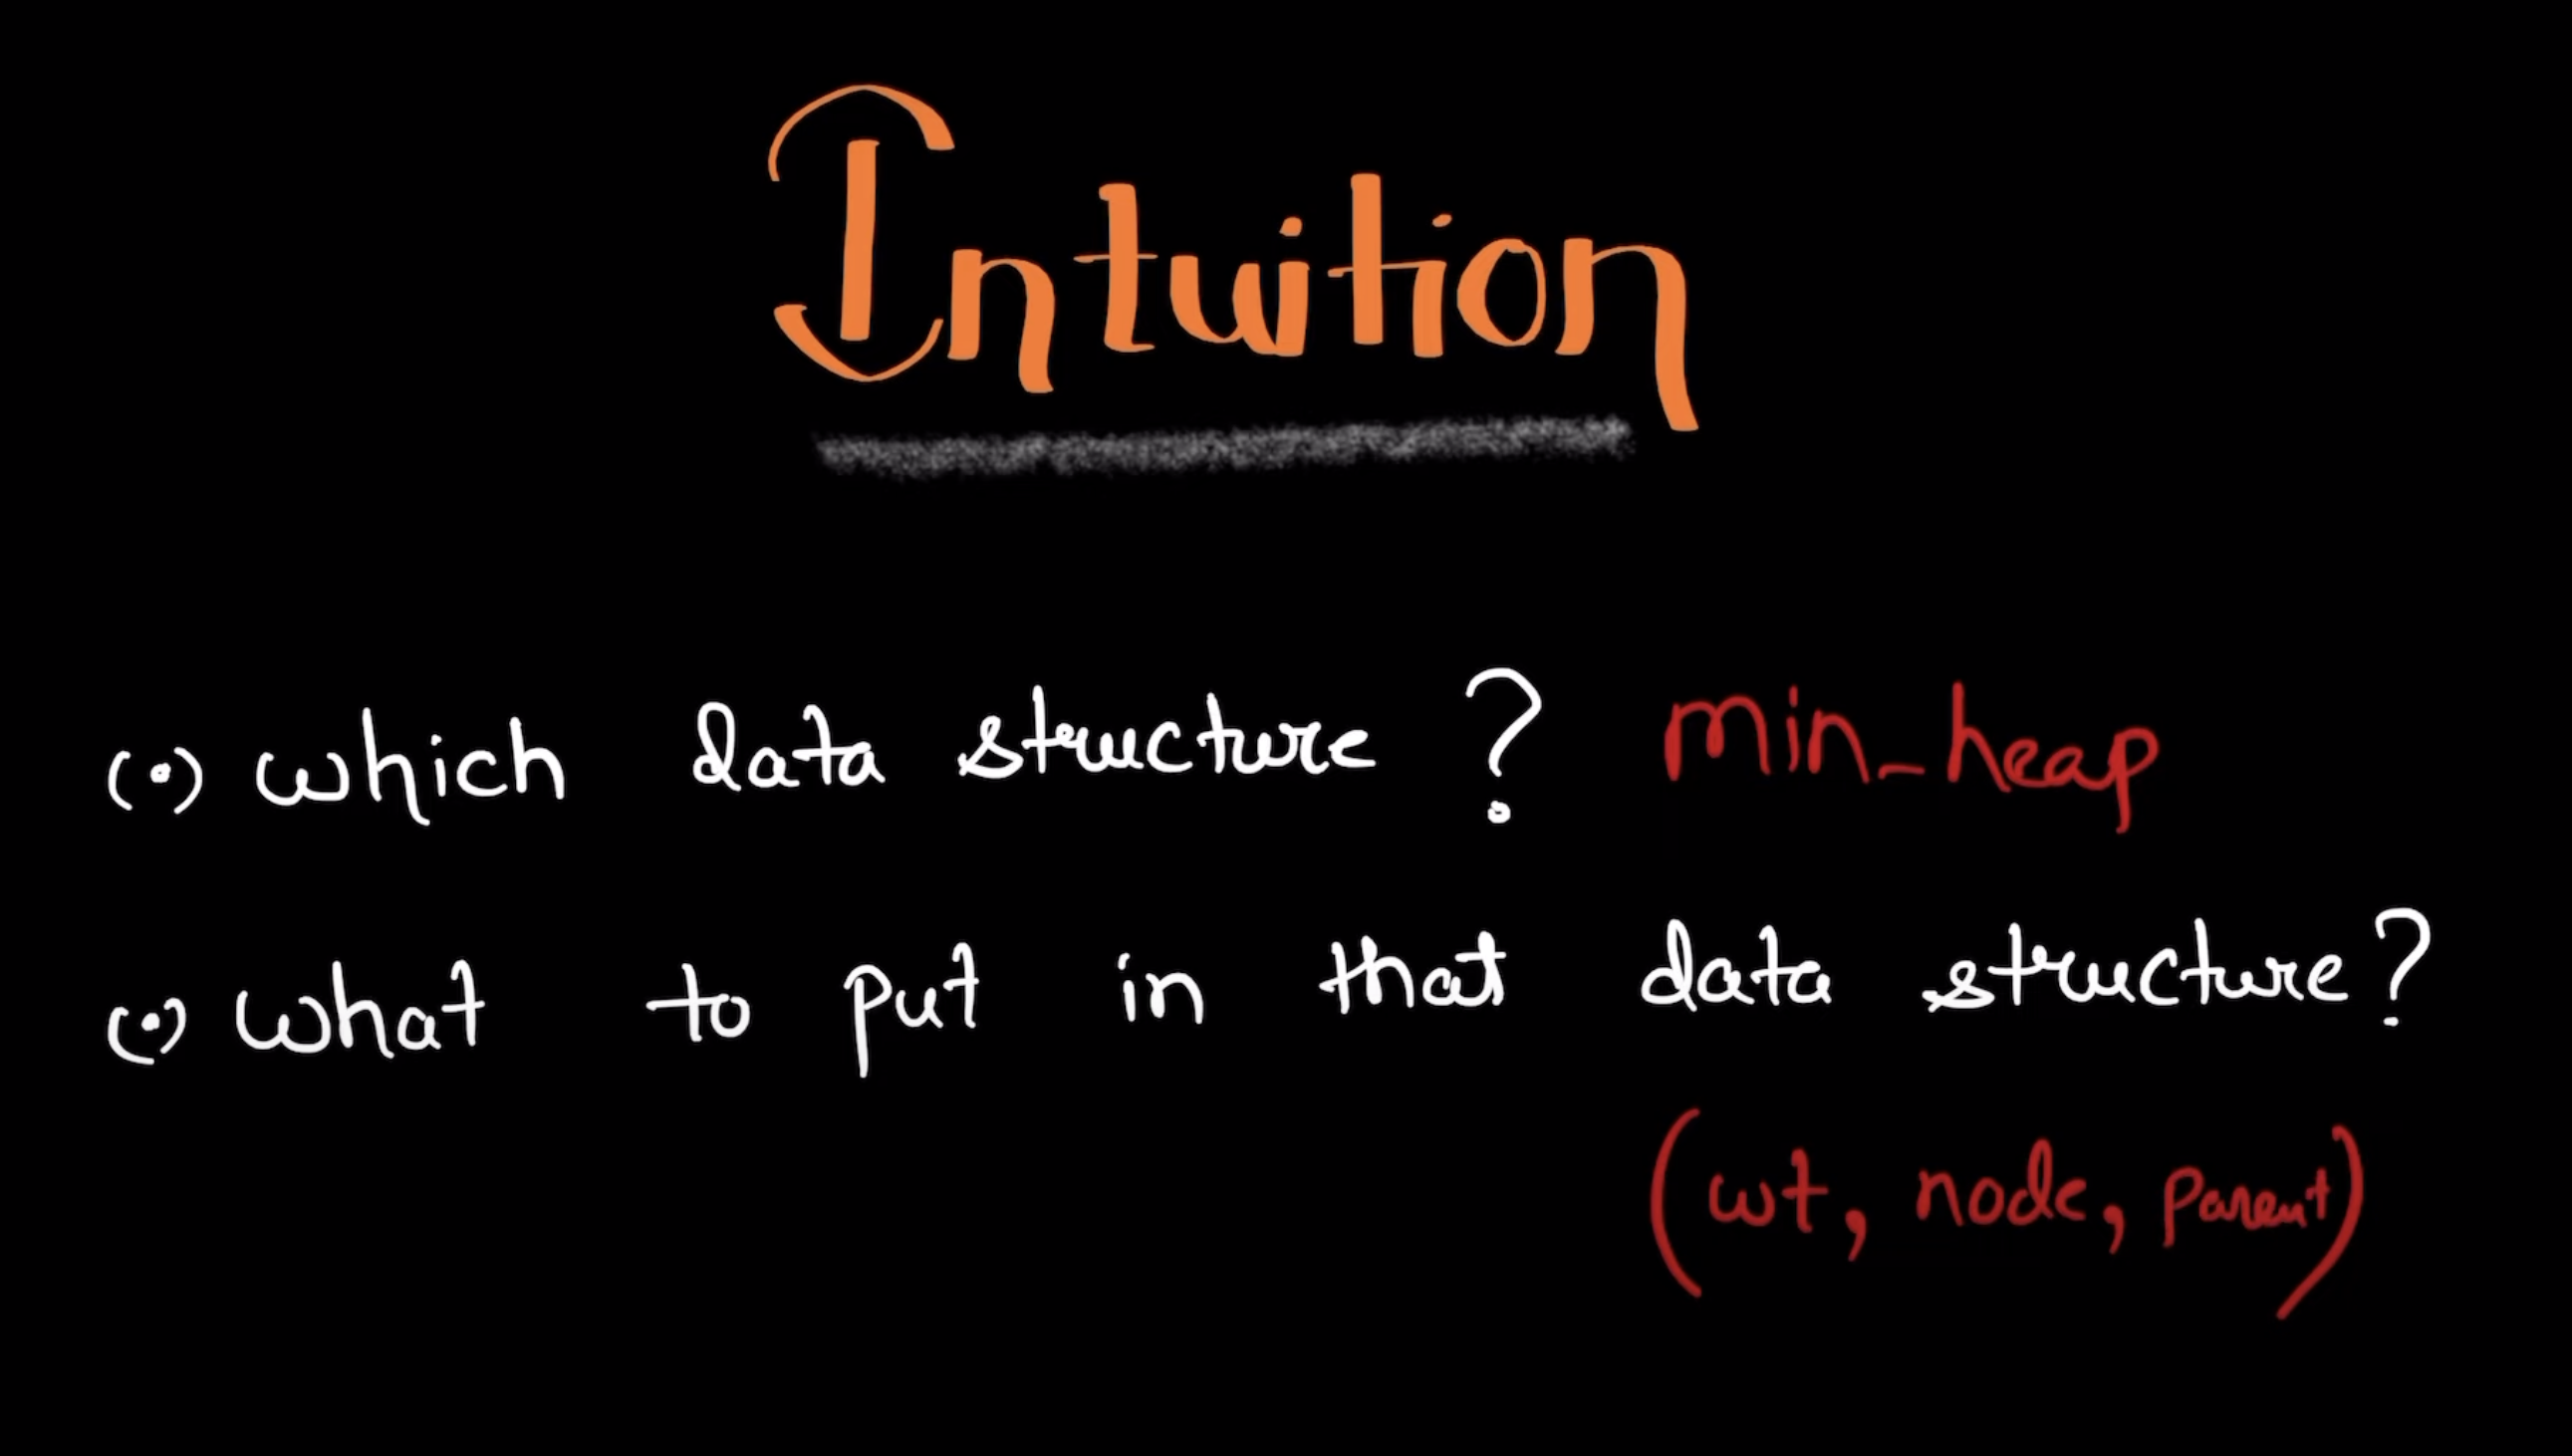 Intuition
(•) which data structure ? min_heap
(•) what to put in that data structure?
(wt, node, parent)